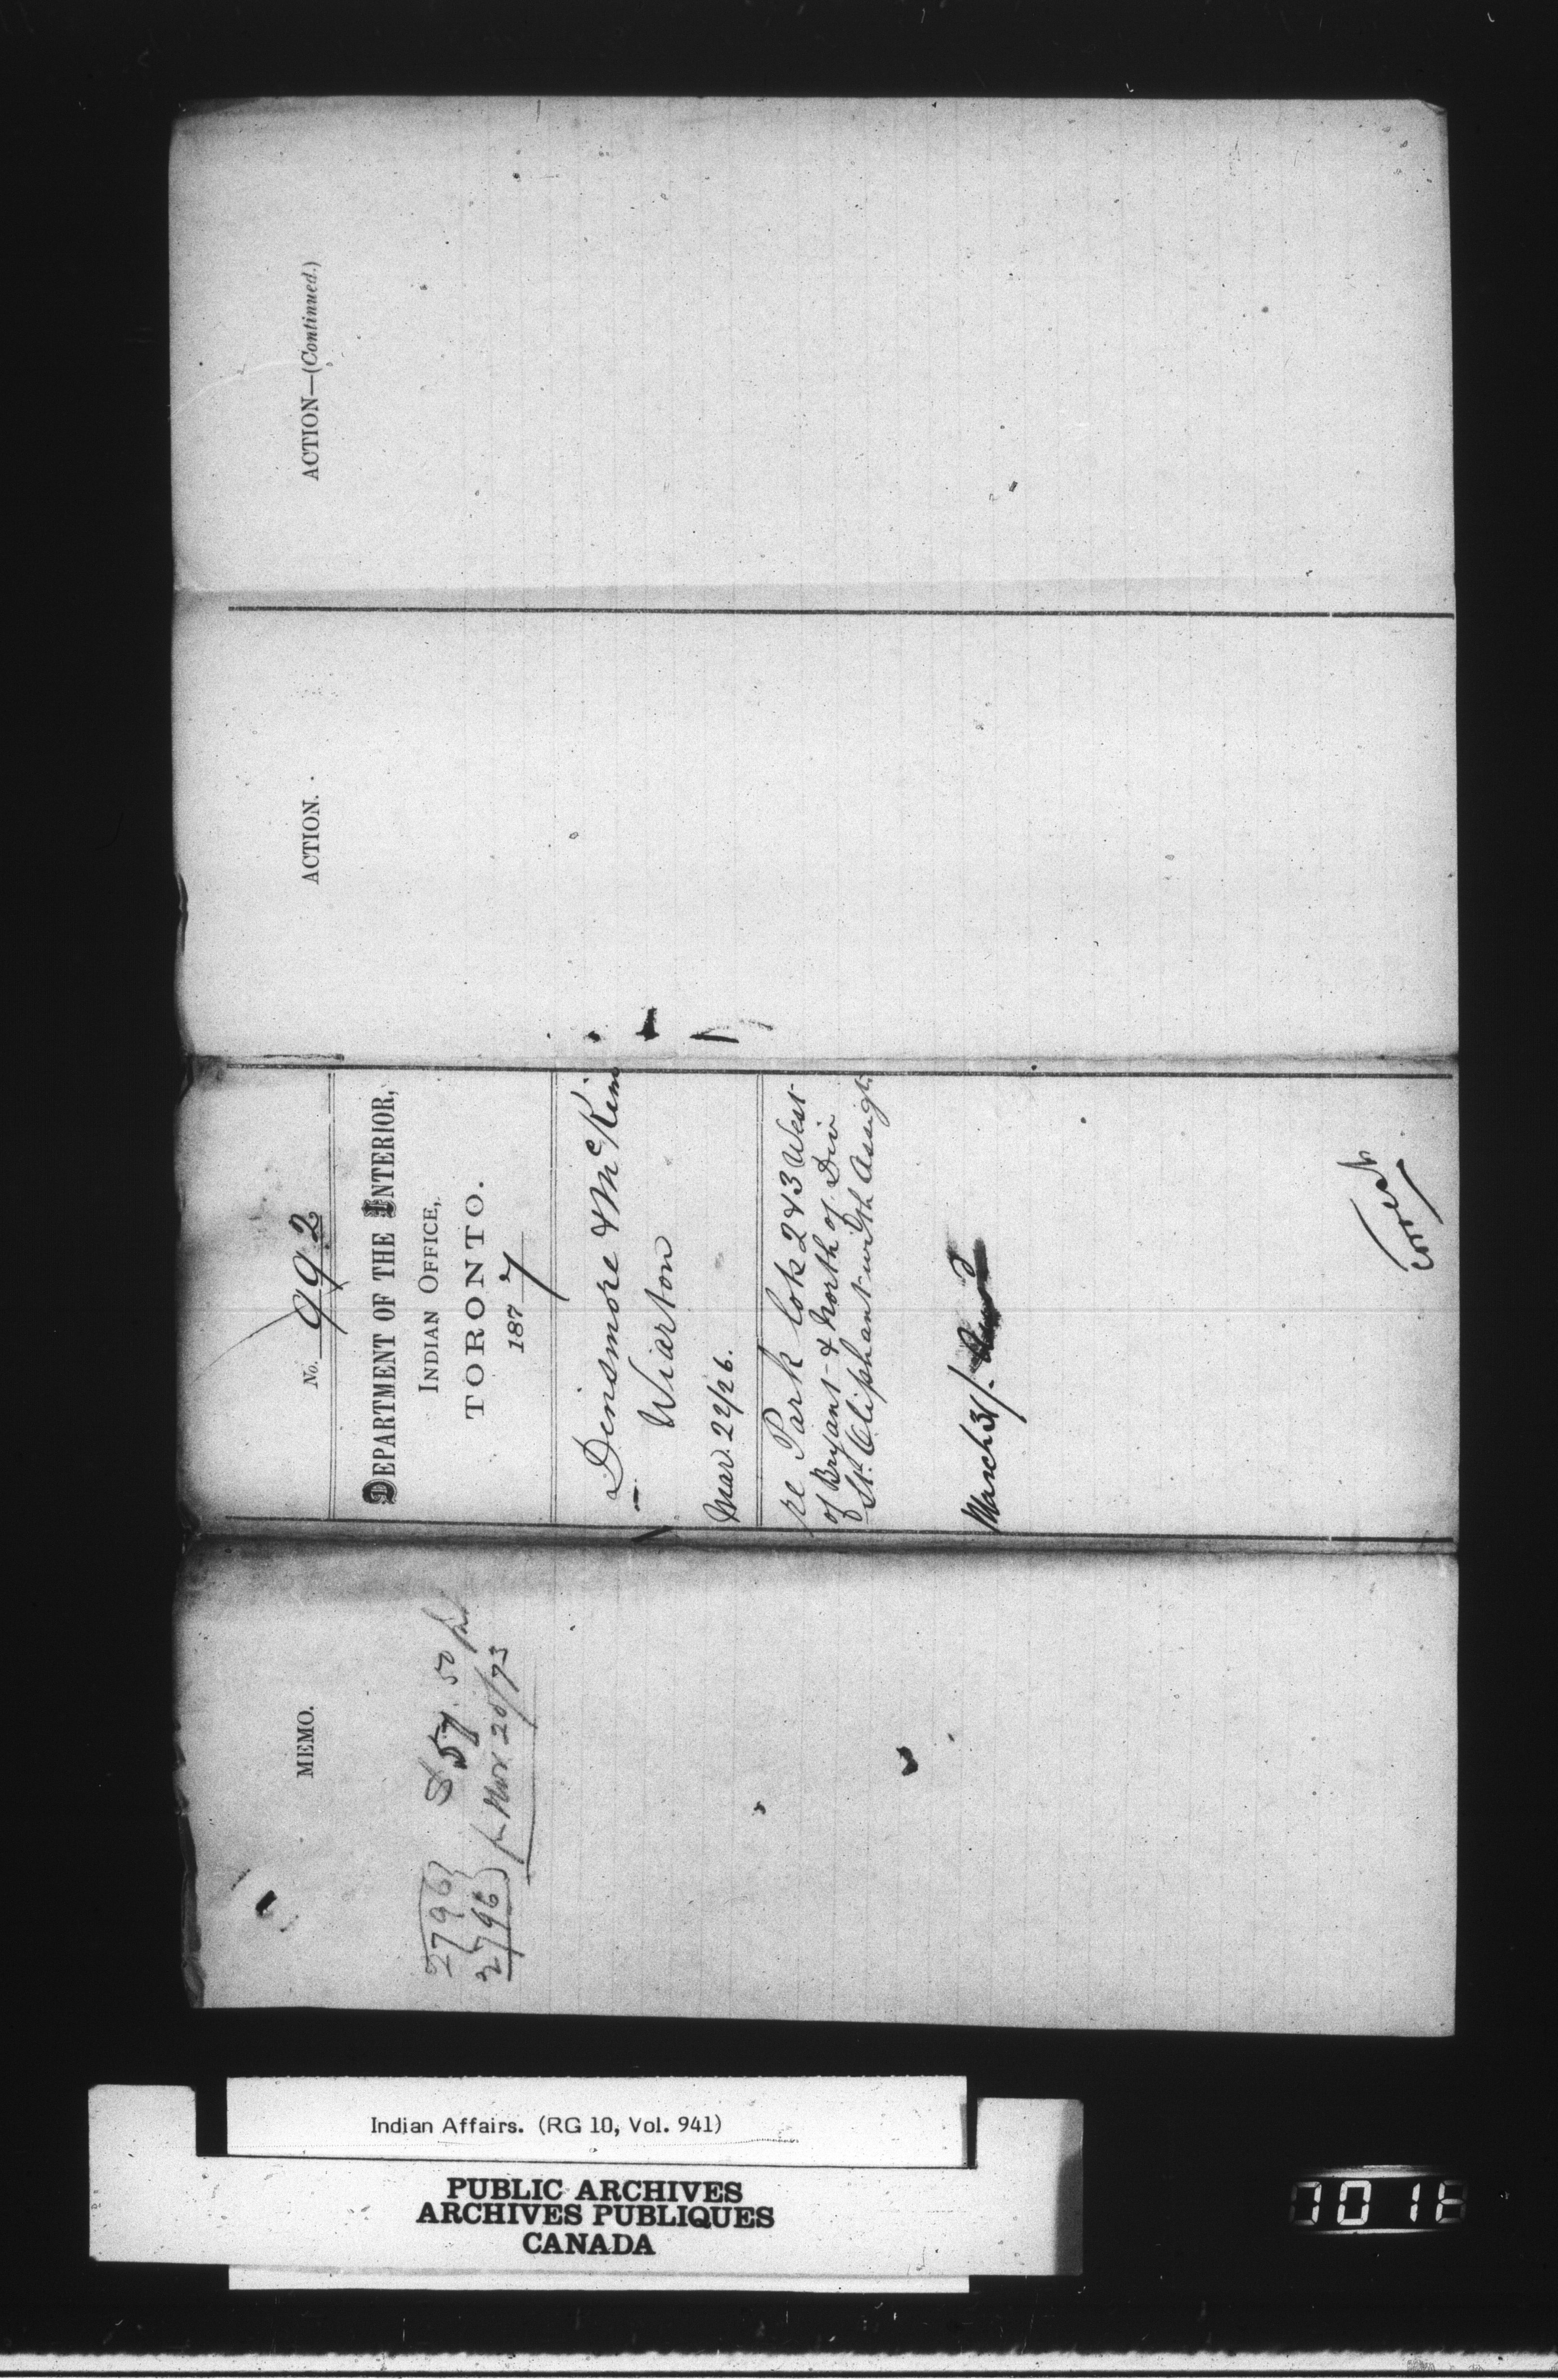 MEMO.
$57.50 pd
2796
2796 pr Nov 20/73
No. 992
DEPARTMENT OF THE INTERIOR,
INDIAN OFFICE,
TORONTO.
1877
Dinsmore & McKim
Wiarton
Mar. 22/26.
re Park lots 2 & 3 West
of Bryant & North of Div
St. Oliphant with Assigt.
March 31/.
ACTION.
ACTION—(Continued.)
Indian Affairs. (RG 10, Vol. 941)
PUBLIC ARCHIVES
ARCHIVES PUBLIQUES
CANADA